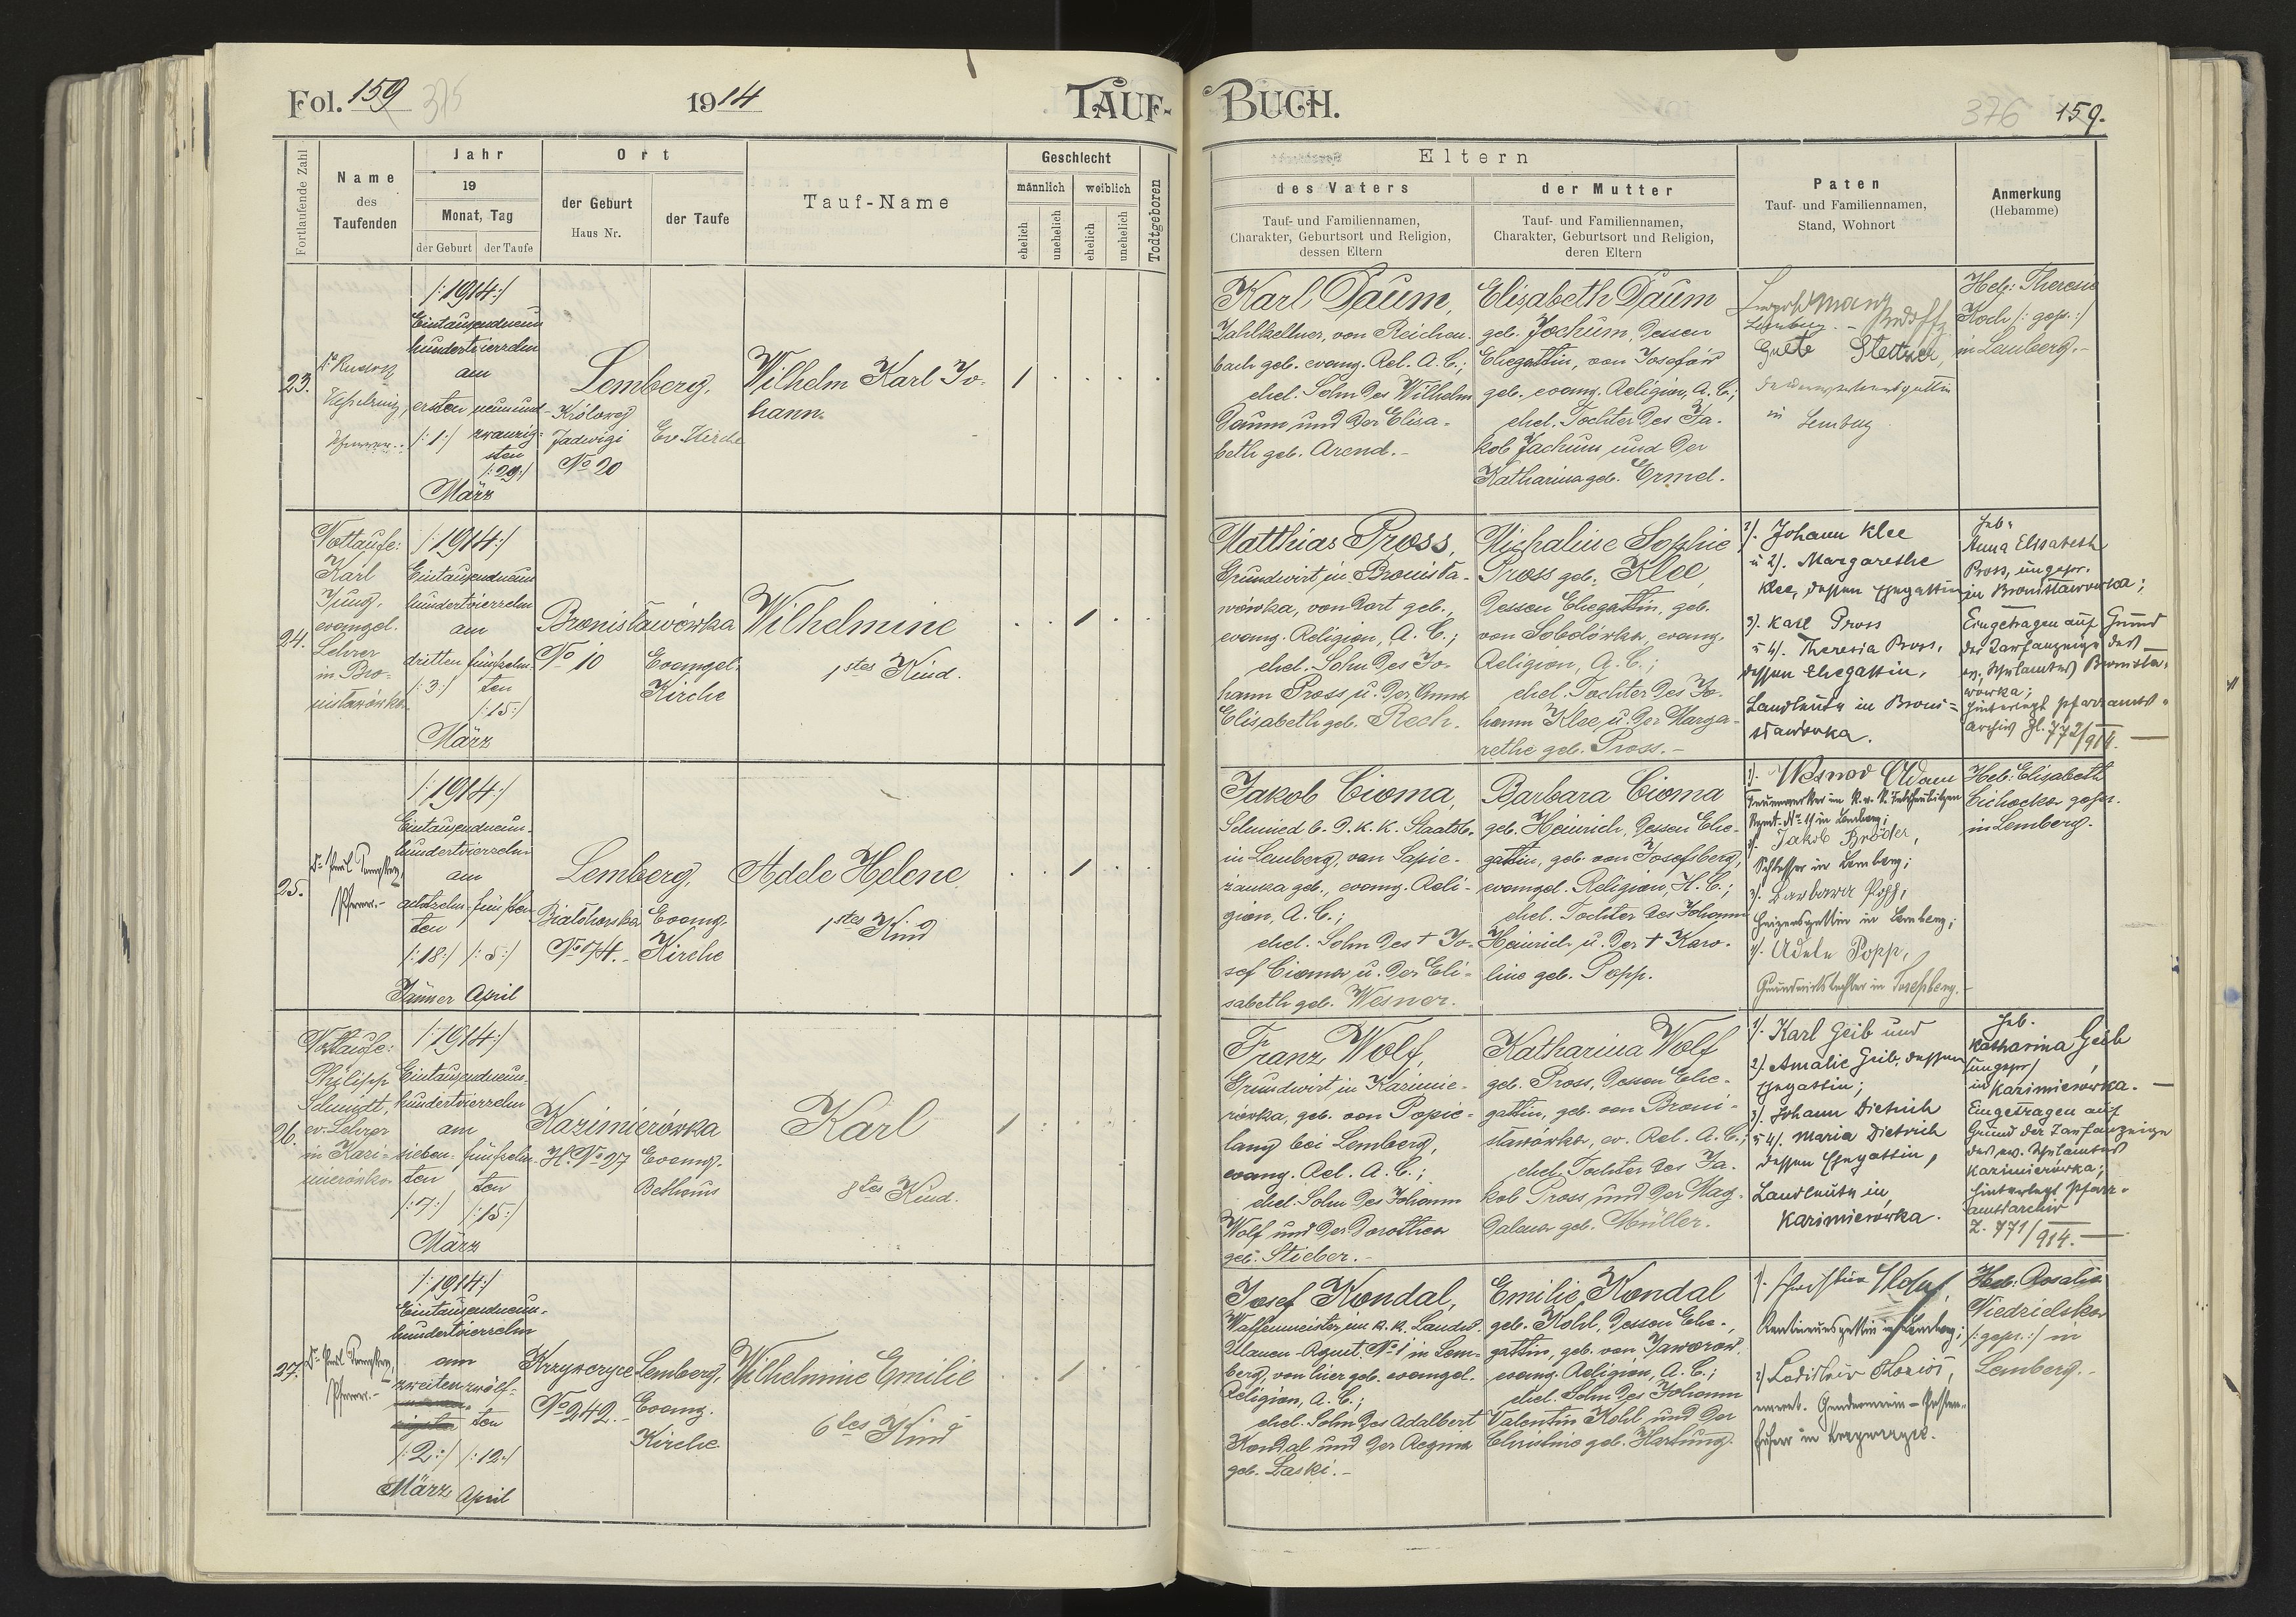 Fol. 159 375
1914
TAUF-
Fortlaufende Zahl
Name
des
Taufenden
Jahr
19
Monat, Tag
der Geburt
der Taufe
Ort
der Geburt
Haus Nr.
der Taufe
Tauf-Name
Geschlecht
männlich
weiblich
ehelich
unehelich
ehelich
unehelich
Todtgeboren
23.
/:1914:/
Eintausendneun
hundertvierzehn
am
ersten neunund-
/:1:/ zwanzig-
sten
/:29:/
März
Lemberg,
Królowej
Jadwigi
No 20
Ev. Kirche
Wilhelm Karl Jo-
hann.
24.
Nottaufe:
Karl
Jung,
evangel.
Lehrer
in Bro-
nisławówka
/:1914:/
Eintausendneun
hundertvierzehn
am
dritten fünfzehn-
/:3:/ ten
/:15:/
März
Bronisławówka
No 10
Evangel.
Kirche
Wilhelmine
1stes Kind.
25.
Pfarrer.-
/:1914:/
Eintausendneun-
hundertvierzehn
am
achtzehn- fünften
ten
/:18:/ /:5:/
Jänner April
Lemberg,
No 74.
Evang.
Kirche
Adele Helene
1stes Kind
26.
Nottaufe:
Philipp
Schmidt,
ev. Lehrer
in Kazi-
mierówka
/:1914:/
Eintausendneun-
hundertvierzehn
am
sieben- fünfzehn-
ten ten
/:7:/ /:15:/
März
Kazimierówka
H. No 27
Evang.
Bethaus
Karl
8tes Kind.
27.
Pfarrer.-
/:1914:/
Eintausendneun-
hundertvierzehn
am
zweiten zwölf-
ten
/:2:/ /:12:/
März April
Krzywczyce
No 242.
Lemberg,
Evang.
Kirche
Wilhelmine Emilie
6tes Kind
BUCH.
376 159.
Eltern
des Vaters
Tauf- und Familiennamen,
Charakter, Geburtsort und Religion,
dessen Eltern
der Mutter
Tauf- und Familiennamen,
Charakter, Geburtsort und Religion,
deren Eltern
Paten
Tauf- und Familiennamen,
Stand, Wohnort
Anmerkung
(Hebamme)
Karl Daum,
Zahlkellner, von Reichen-
bach geb. evang. Rel. A. C.;
ehel. Sohn des Wilhelm
Daum und der Elisa-
beth geb. Arend.-
Elisabeth Daum
geb. Jochum, dessen
Ehegattin, von Josefów
geb. evang. Religion, A. C.;
ehel. Tochter des Ja-
kob Jachum und der
Katharina geb. Ermel.
in Lemberg
Heb: Therese
Koch /: gepr. :/
in Lemberg.-
Matthias Pross,
Grundwirt in Bronisła-
wówka, von dort geb.,
evang. Religion, A. C.;
ehel. Sohn des Jo-
hann Pross u. der Anna
Elisabeth geb. Rech.
Michaline Sophie
Pross geb. Klee,
dessen Ehegattin, geb.
von Sobolówka, evang.
Religion, A. C.;
ehel. Tochter des Jo-
hann Klee u. der Marga-
rethe geb. Pross.-
1). Johann Klee
u 2). Margarethe
Klee, dessen Ehegattin
3). Karl Pross
u 4). Theresia Pross,
dessen Ehegattin,
Landleute in Broni=
sławówka.
Heb:
Anna Elisabeth
Pross, ungepr.
in Bronisławówka;
Eingetragen auf Grund
der Taufanzeige des
ev. Schulamtes Bronisła-
wówka;
hinterlegt Pfarramts-
archiv Zl. 772/914.
Jakob Cioma,
Schmied b. d. k. k. Staatsb.
in Lemberg, von Sapie-
żanka geb., evang. Reli-
gion, A. C.;
ehel. Sohn des † Jo-
sef Cioma u. der Eli-
sabeth geb. Wesner.
Barbara Cioma
geb. Heinrich, dessen Ehe-
gattin, geb. von Josefsberg,
evangel. Religion, H. C.;
ehel. Tochter des Johann
Heinrich u. der † Karo-
line geb. Popp.
1). Wesner Adam
2). Jakob Bröder,
Schlosser in Lemberg;
3). Barbara
in Lemberg;
4). Adele Popp,
in Josefsberg.
Heb: Elisabeth
Cichocka gepr.
in Lemberg.
Franz Wolf,
Grundwirt in Kazimie-
rówka, geb. von Popie-
lany bei Lemberg,
evang. Rel. A. C.;
ehel. Sohn des Johann
Wolf und der Dorothea
geb. Stieber.-
Katharina Wolf
geb. Pross, dessen Ehe-
gattin, geb. von Broni-
sławówka, ev. Rel. A. C.;
ehel. Tochter des Ja-
kob Pross und der Mag-
dalena geb. Müller.
1). Karl Geib und
2). Amalie Geib, dessen
Ehegattin;
3). Johann Dietrich
u 4). Maria Dietrich
dessen Ehegattin,
Landleute in
Kazimierówka.
Heb.
Katharina Geib
/ungepr/
in Kazimierówka.
Eingetragen auf
Grund der Taufanzeige
des ev. Schulamtes
Kazimierówka;
hinterlegt Pfarr-
amtsarchiv
Z. 771/914.
Josef Kondal,
Waffenmeister im k. k. Landw.
Ulanen-Regmt. No 1 in Lem-
berg, von hier geb. evangel.
Religion, A. C.;
ehel. Sohn des Adalbert
Kondal und der Regina
geb. Laski.-
Emilie Kondal
geb. Kohl, dessen Ehe-
gattin, geb. von Jaworów,
evang. Religion, A. C.;
ehel. Sohn des Johann
Valentin Kohl und der
Christine geb. Hartung.
in Lemberg;
Heb. Rosalia
Niedzielska
/: gepr. :/ in
Lemberg.-